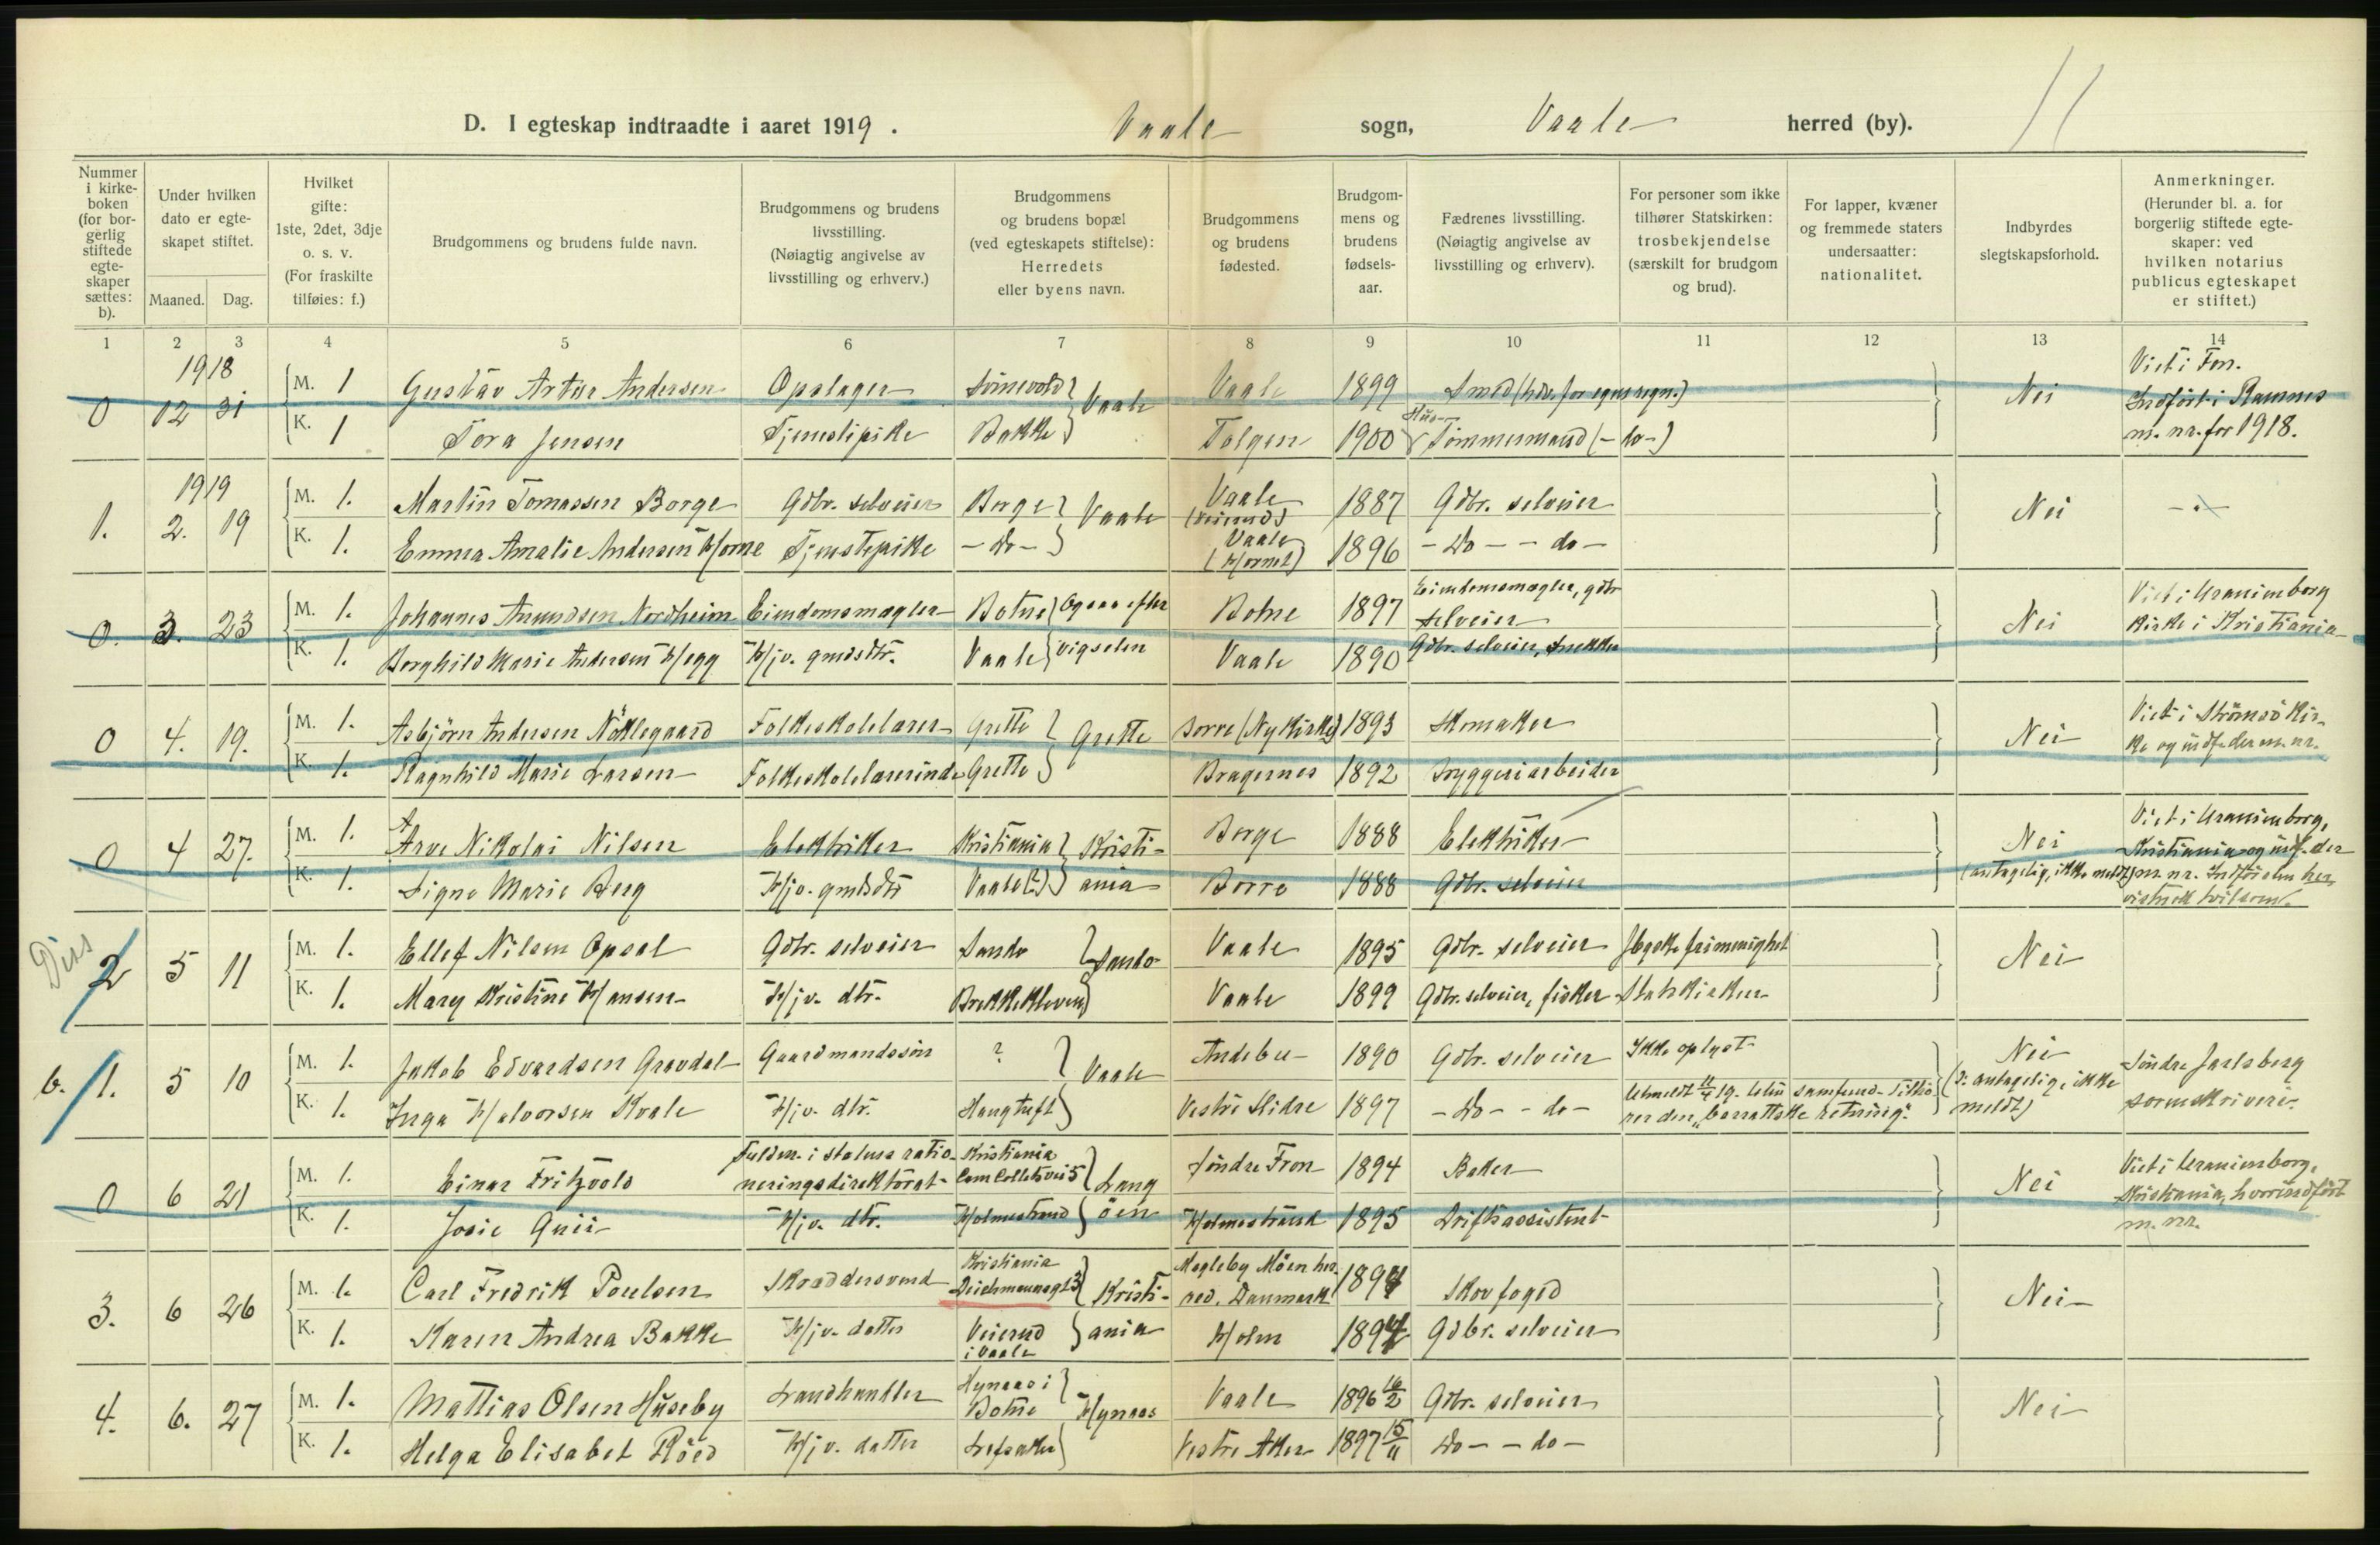 D. I egteskap indtraadte i aaret 1919. Vaale sogn, Vaale herred (by). 11
Nummer i kirkeboken (for borgerlig stiftede egteskaper sættes: b).
Under hvilken dato er egteskapet stiftet.
Maaned. Dag.
Hvilket gifte: 1ste, 2det, 3dje o. s. v. (For fraskilte tilføies: f.)
Brudgommens og brudens fulde navn.
Brudgommens og brudens livsstilling. (Nøiagtig angivelse av livsstilling og erhverv.)
Brudgommens og brudens bopæl (ved egteskapets stiftelse): Herredets eller byens navn.
Brudgommens og brudens fødested.
Brudgommens og brudens fødselsaar.
Fædrenes livsstilling. (Nøiagtig angivelse av livsstilling og erhverv).
For personer som ikke tilhører Statskirken: trosbekjendelse (særskilt for brudgom og brud).
For lapper, kvæner og fremmede staters undersaatter: nationalitet.
Indbyrdes slegtskapsforhold.
Anmerkninger. (Herunder bl. a. for borgerlig stiftede egteskaper: ved hvilken notarius publicus egteskapet er stiftet.)
1 2 3 4 5 6 7 8 9 10 11 12 13 14
1918
0 12 31 M. 1 Gustav Artur Andersen Opslager Vaale Vaale 1899 Smed (hdv. for egen regn.) Nei Viet i Fon. Indført i Ramnes m. nr. for 1918.
K. 1 Tora Jensen Tjenestepike Bakke Tolgen 1900 Hus- Tømmermand (- do -)
1919
1. 2. 19 M. 1. Martin Tomassen Borge Gdbr. selveier Borge Vaale Vaale 1887 Gdbr. selveier Nei - " -
K. 1. Emma Amalie Andersen Horne Tjenstepike - Do - Vaale 1896 - Do - - do -
0. 3. 23 M. 1. Johannes Amundsen Nordheim Eiendomsmægler Botne Ogsaa efter vigselen Botne 1897 Eiendomsmægler, gdbr selveier Nei Viet i Uranienborg kirke i Kristiania
K. 1. Borghild Marie Andersen Hegg Hjv. gmdsdtr. Vaale Vaale 1890 Gdbr. selveier, snekker
0 4. 19. M. 1. Asbjörn Andersen Nöklegaard Folkeskolelærer Grette Grette Borre (Nykirke) 1893 Skomaker Nei Viet i Strömsö kirke og indf. der m. nr.
K. 1. Ragnhild Marie Larsen Folkeskolelærerinde Grette Bragernes 1892 Bryggeriarbeider
0 4 27. M. 1. Arve Nikolai Nilsen Elektriker Kristiania Kristiania Borge 1888 Elektriker Nei (antagelig, ikke meldt) Viet i Uranienborg, Kristiania og indf. der m. nr. Indførelsen her
K. 1. Signe Marie Berg Hjv. gmdsdtr Vaale (?) Borre 1888 Gdbr. selveier
Diss
2 5 11 M. 1. Ellef Nilsen Opsal Gdbr. selveier Sande Sande Vaale 1895 Gdbr. selveier frimenighet Nei
K. 1. Mary Kristine Hansen Hjv. dtr. Brekkekleven Vaale 1899 Gdbr. selveier, fisker Statskirken
b. 1. 5 10 M. 1. Jakob Edvardsen Gravdal Gaardmandssön ? Vaale Andebu 1890 Gdbr. selveier Ikke oplyst Nei (? antagelig, ikke meldt) Söndre Jarlsberg sorenskriveri.
K. 1. Inga Halvorsen Kvale Hjv. dtr. Haugtuft Vestre Slidre 1897 - Do - - do - Utmeldt 11/4 19. samfund. Tilhörer den "barrattske retning".
0 6 21 M. 1. Einar Fritzvold Fuldm. i statens rationeringsdirektorat Kristiania Cam Colletsvei 5 Langöen Söndre Fron 1894 Baker Nei Viet i Uranienborg, Kristiania, hvor indfört m. nr.
K. 1. Josie Hjv. dtr. Holmestrand Holmestrand 1895 Driftsassistent
3. 6 26 M. 1. Carl Fredrik Poulsen Skræddersvend Kristiania Deichmannsgt 3 Kristiania Magleby Möen herred, Danmark 1894 Skovfoged Nei
K. 1. Karen Andrea Bakke Hjv. datter Veierud i Vaale Holm 1894 Gdbr. selveier
4. 6. 27 M. 1. Mattias Olsen Huseby Landhandler Hynaas i Botne Hynaas Vaale 1896 16/2 Gdbr. selveier Nei
K. 1. Helga Elisabet Röed Hjv. datter Lefsaker Vestre Aker 1897 15/11 Do - - do -